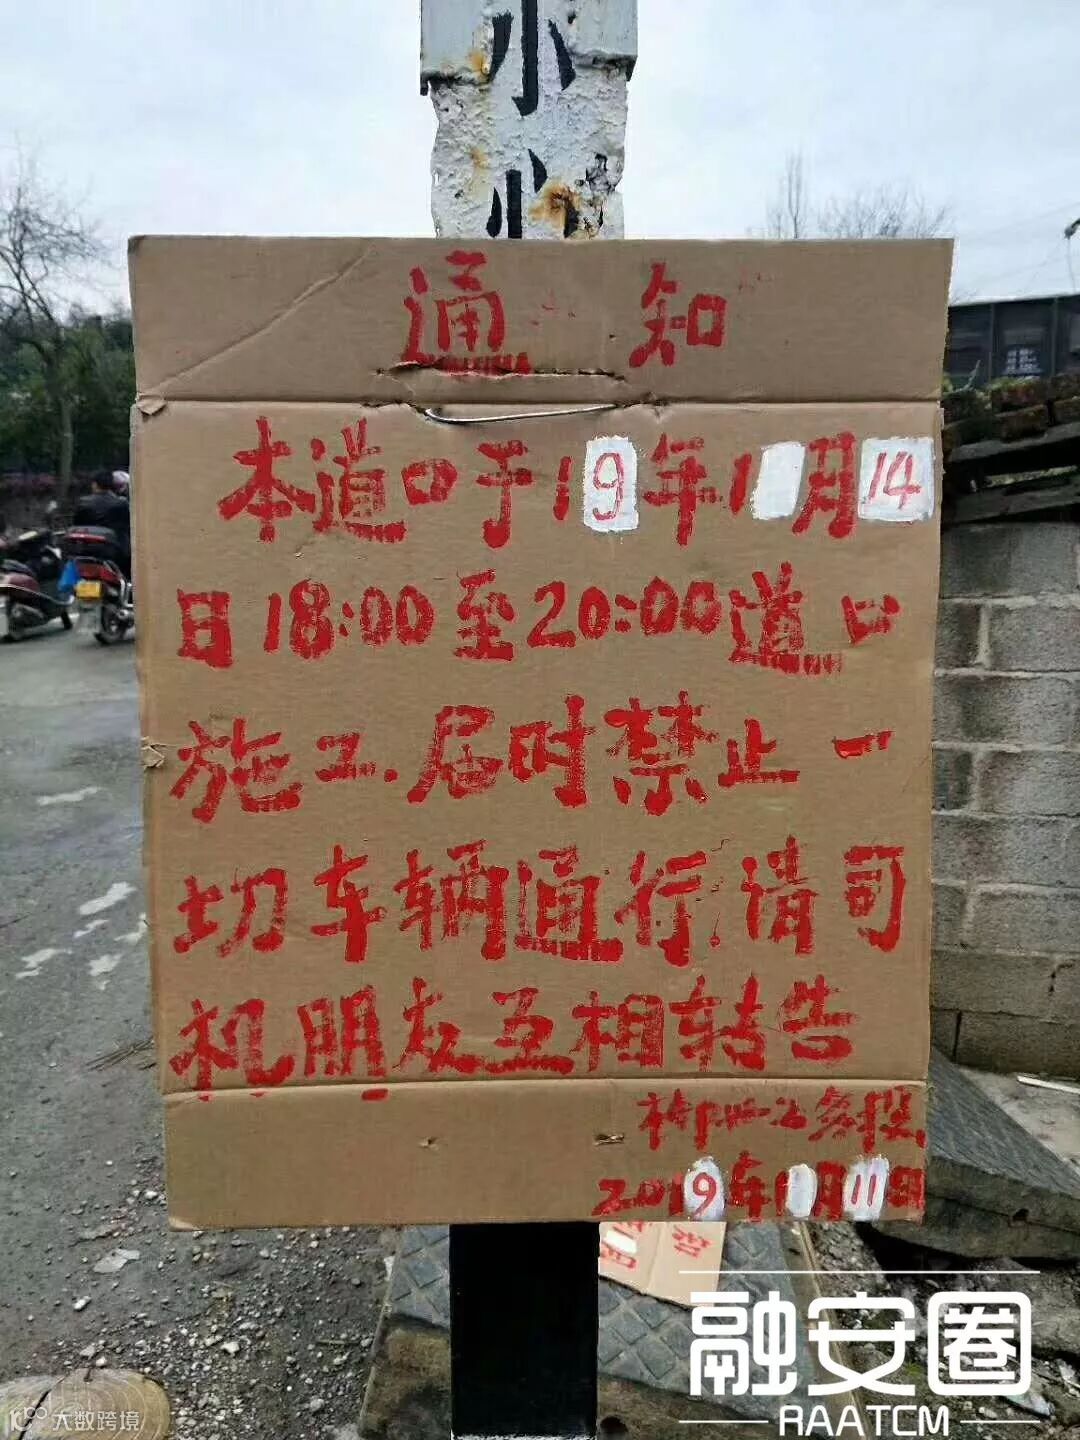 小
心
通知
本道口于19年1月14
日18:00至20:00道口
施工.届时禁止一
切车辆通行,请司
机朋友互相转告
柳州工务段
2019年1月11日
融安圈
RAATCM
大数跨境